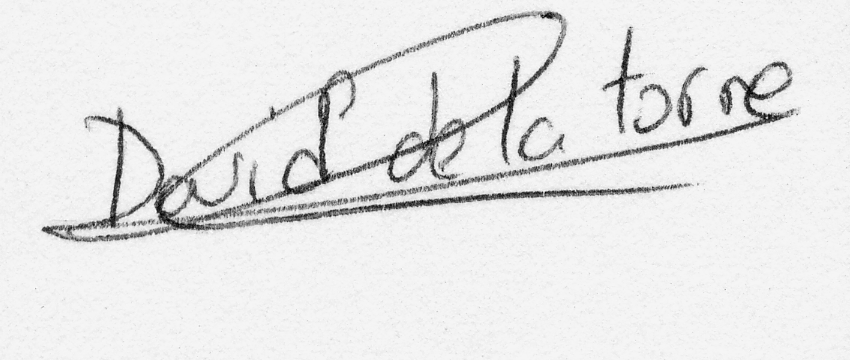 David de la torre